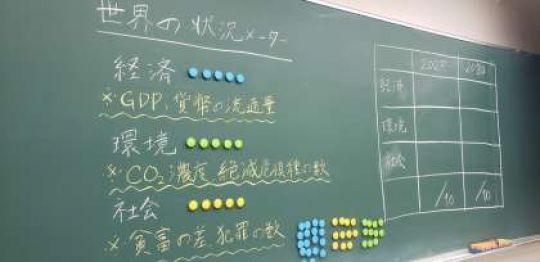 世界の状況メーター
経済
※GDP、貨幣の流通量
環境
※CO2濃度、絶滅危惧種の数
社会
※貧富の差、犯罪の数
2030
経済
環境
社会
/10 /10